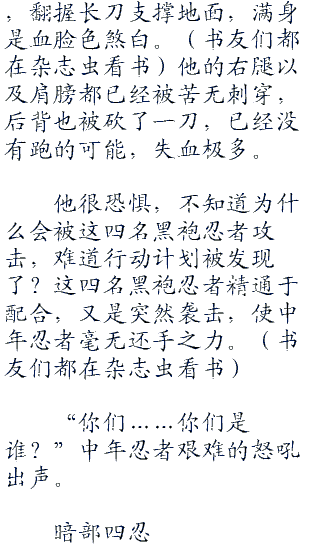 ，翻握长刀支撑地面，满身
是血脸色煞白。（书友们都
在杂志虫看书）他的右腿以
及肩膀都已经被苦无刺穿，
后背也被砍了一刀，已经没
有跑的可能，失血极多。
他很恐惧，不知道为什
么会被这四名黑袍忍者攻
击，难道行动计划被发现
了？这四名黑袍忍者精通于
配合，又是突然袭击，使中
年忍者毫无还手之力。（书
友们都在杂志虫看书）
“你们……你们是
谁？”中年忍者艰难的怒吼
出声。
暗部四忍